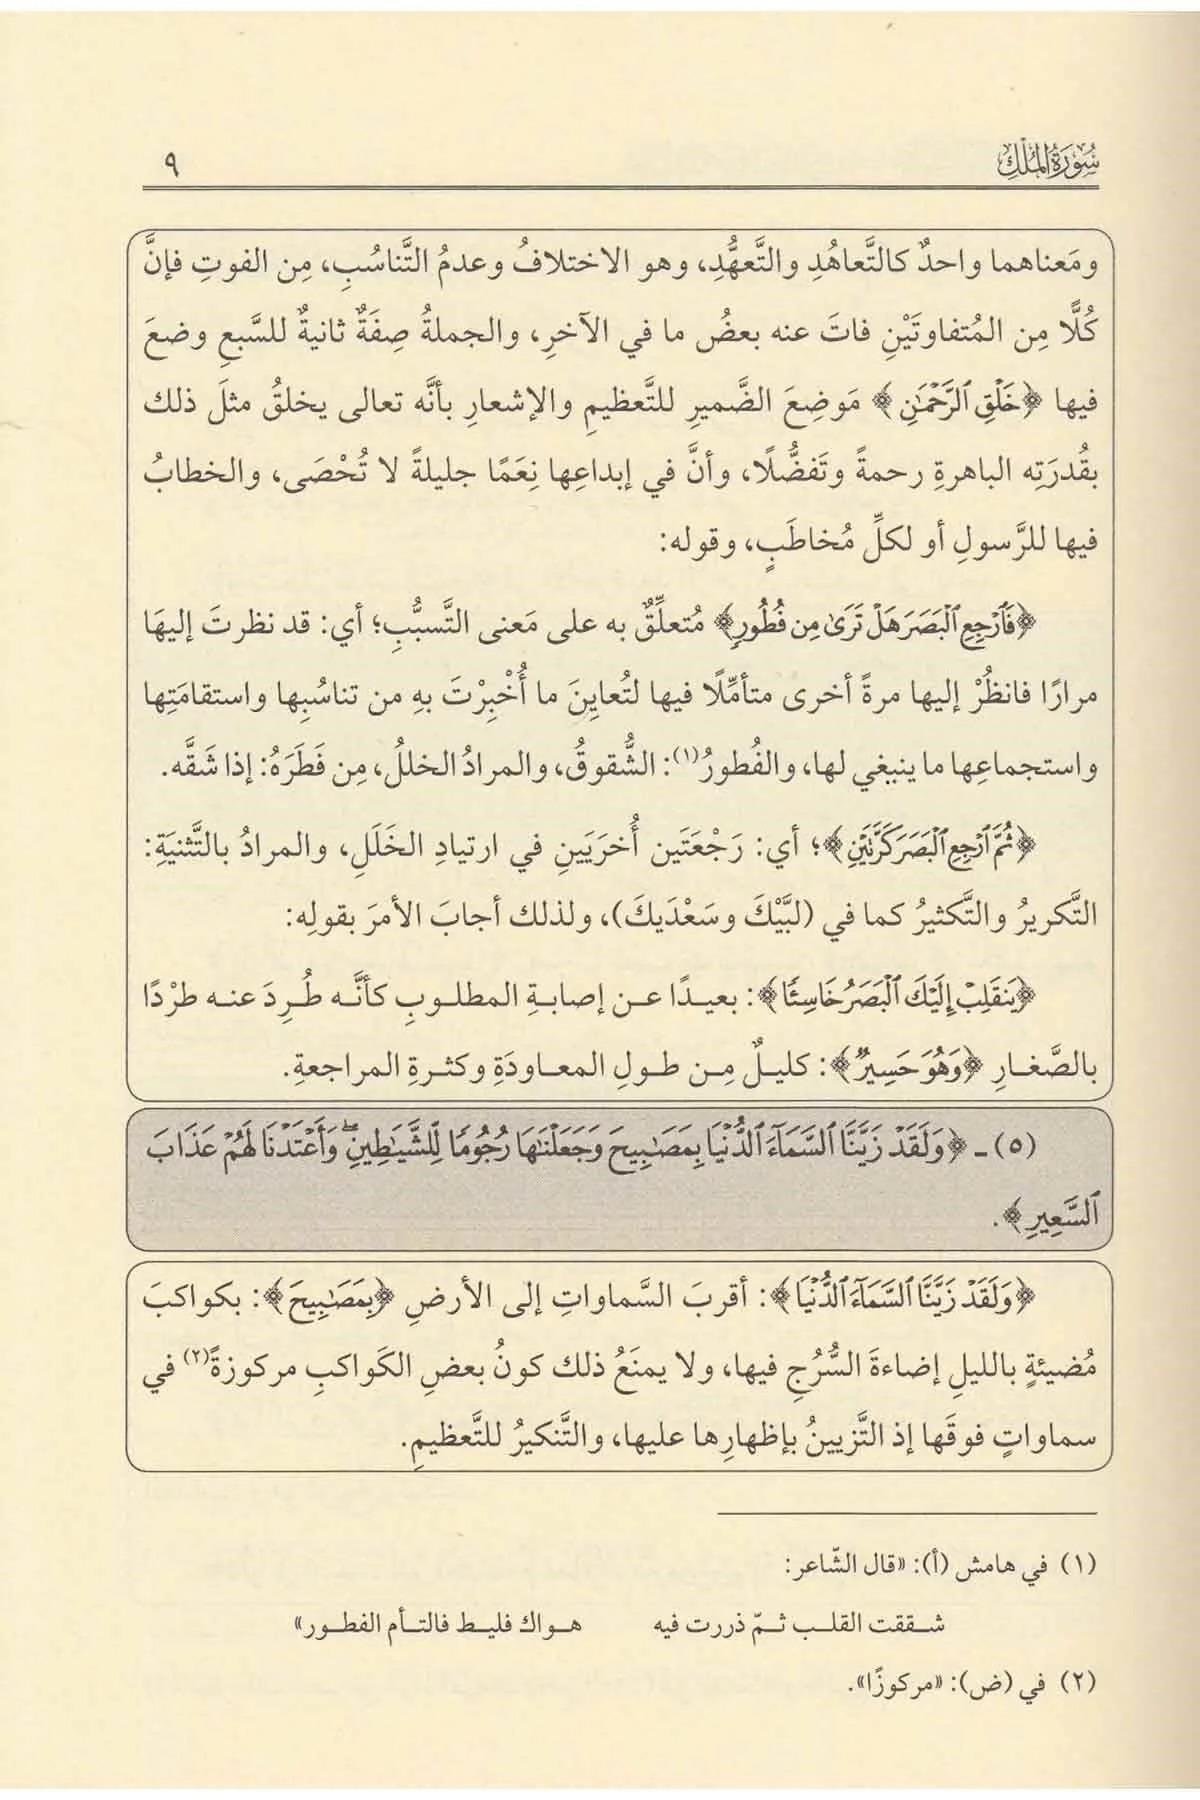 سُورَةُ المُلْكِ ٩
ومَعناهما واحدٌ كالتَّعاهُدِ والتَّعهُّدِ، وهو الاختلافُ وعدمُ التَّناسُبِ، مِن الفوتِ فإنَّ
كُلًّا مِن المُتفاوتَيْنِ فاتَ عنه بعضُ ما في الآخرِ، والجملةُ صِفَةٌ ثانيةٌ للسَّبعِ وضعَ
فيها ﴿خَلْقِ ٱلرَّحْمَٰنِ﴾ مَوضِعَ الضَّميرِ للتَّعظيمِ والإشعارِ بأنَّه تعالى يخلقُ مثلَ ذلك
بقُدرَتِه الباهرةِ رحمةً وتَفضُّلًا، وأنَّ في إبداعِها نِعَمًا جليلةً لا تُحْصَى، والخطابُ
فيها للرَّسولِ أو لكلِّ مُخاطَبٍ، وقوله:
﴿فَٱرْجِعِ ٱلْبَصَرَ هَلْ تَرَىٰ مِن فُطُورٍ﴾ مُتعلِّقٌ به على مَعنى التَّسبُّبِ؛ أي: قد نظرتَ إليهَا
مرارًا فانظُرْ إليها مرةً أخرى متأمِّلًا فيها لتُعاينَ ما أُخْبِرْتَ بهِ من تناسُبِها واستقامَتِها
واستجماعِها ما ينبغي لها، والفُطورُ(١): الشُّقوقُ، والمرادُ الخللُ، مِن فَطَرَهُ: إذا شَقَّه.
﴿ثُمَّ ٱرْجِعِ ٱلْبَصَرَ كَرَّتَيْنِ﴾؛ أي: رَجْعَتَين أُخرَيَينِ في ارتيادِ الخَلَلِ، والمرادُ بالتَّثنيَةِ:
التَّكريرُ والتَّكثيرُ كما في (لبَّيْكَ وسَعْدَيكَ)، ولذلك أجابَ الأمرَ بقولِه:
﴿يَنقَلِبْ إِلَيْكَ ٱلْبَصَرُ خَاسِئًا﴾: بعيدًا عن إصابةِ المطلوبِ كأنَّه طُرِدَ عنه طرْدًا
بالصَّغارِ ﴿وَهُوَ حَسِيرٌ﴾: كليلٌ مِن طولِ المعاودَةِ وكثرةِ المراجعةِ.
(٥) ـ ﴿وَلَقَدْ زَيَّنَّا ٱلسَّمَآءَ ٱلدُّنْيَا بِمَصَٰبِيحَ وَجَعَلْنَٰهَا رُجُومًا لِّلشَّيَٰطِينِ ۖ وَأَعْتَدْنَا لَهُمْ عَذَابَ
ٱلسَّعِيرِ﴾.
﴿وَلَقَدْ زَيَّنَّا ٱلسَّمَآءَ ٱلدُّنْيَا﴾: أقربَ السَّماواتِ إلى الأرضِ ﴿بِمَصَٰبِيحَ﴾: بكواكبَ
مُضيئةٍ بالليلِ إضاءةَ السُّرُجِ فيها، ولا يمنَعُ ذلك كونُ بعضِ الكَواكبِ مركوزةً(٢) في
سماواتٍ فوقَها إذ التَّزيينُ بإظهارِها عليها، والتَّنكيرُ للتَّعظيمِ.
(١) في هامش (أ): «قال الشّاعر:
شققت القلب ثمّ ذررت فيه هواك فليط فالتأم الفطور»
(٢) في (ض): «مركوزًا».